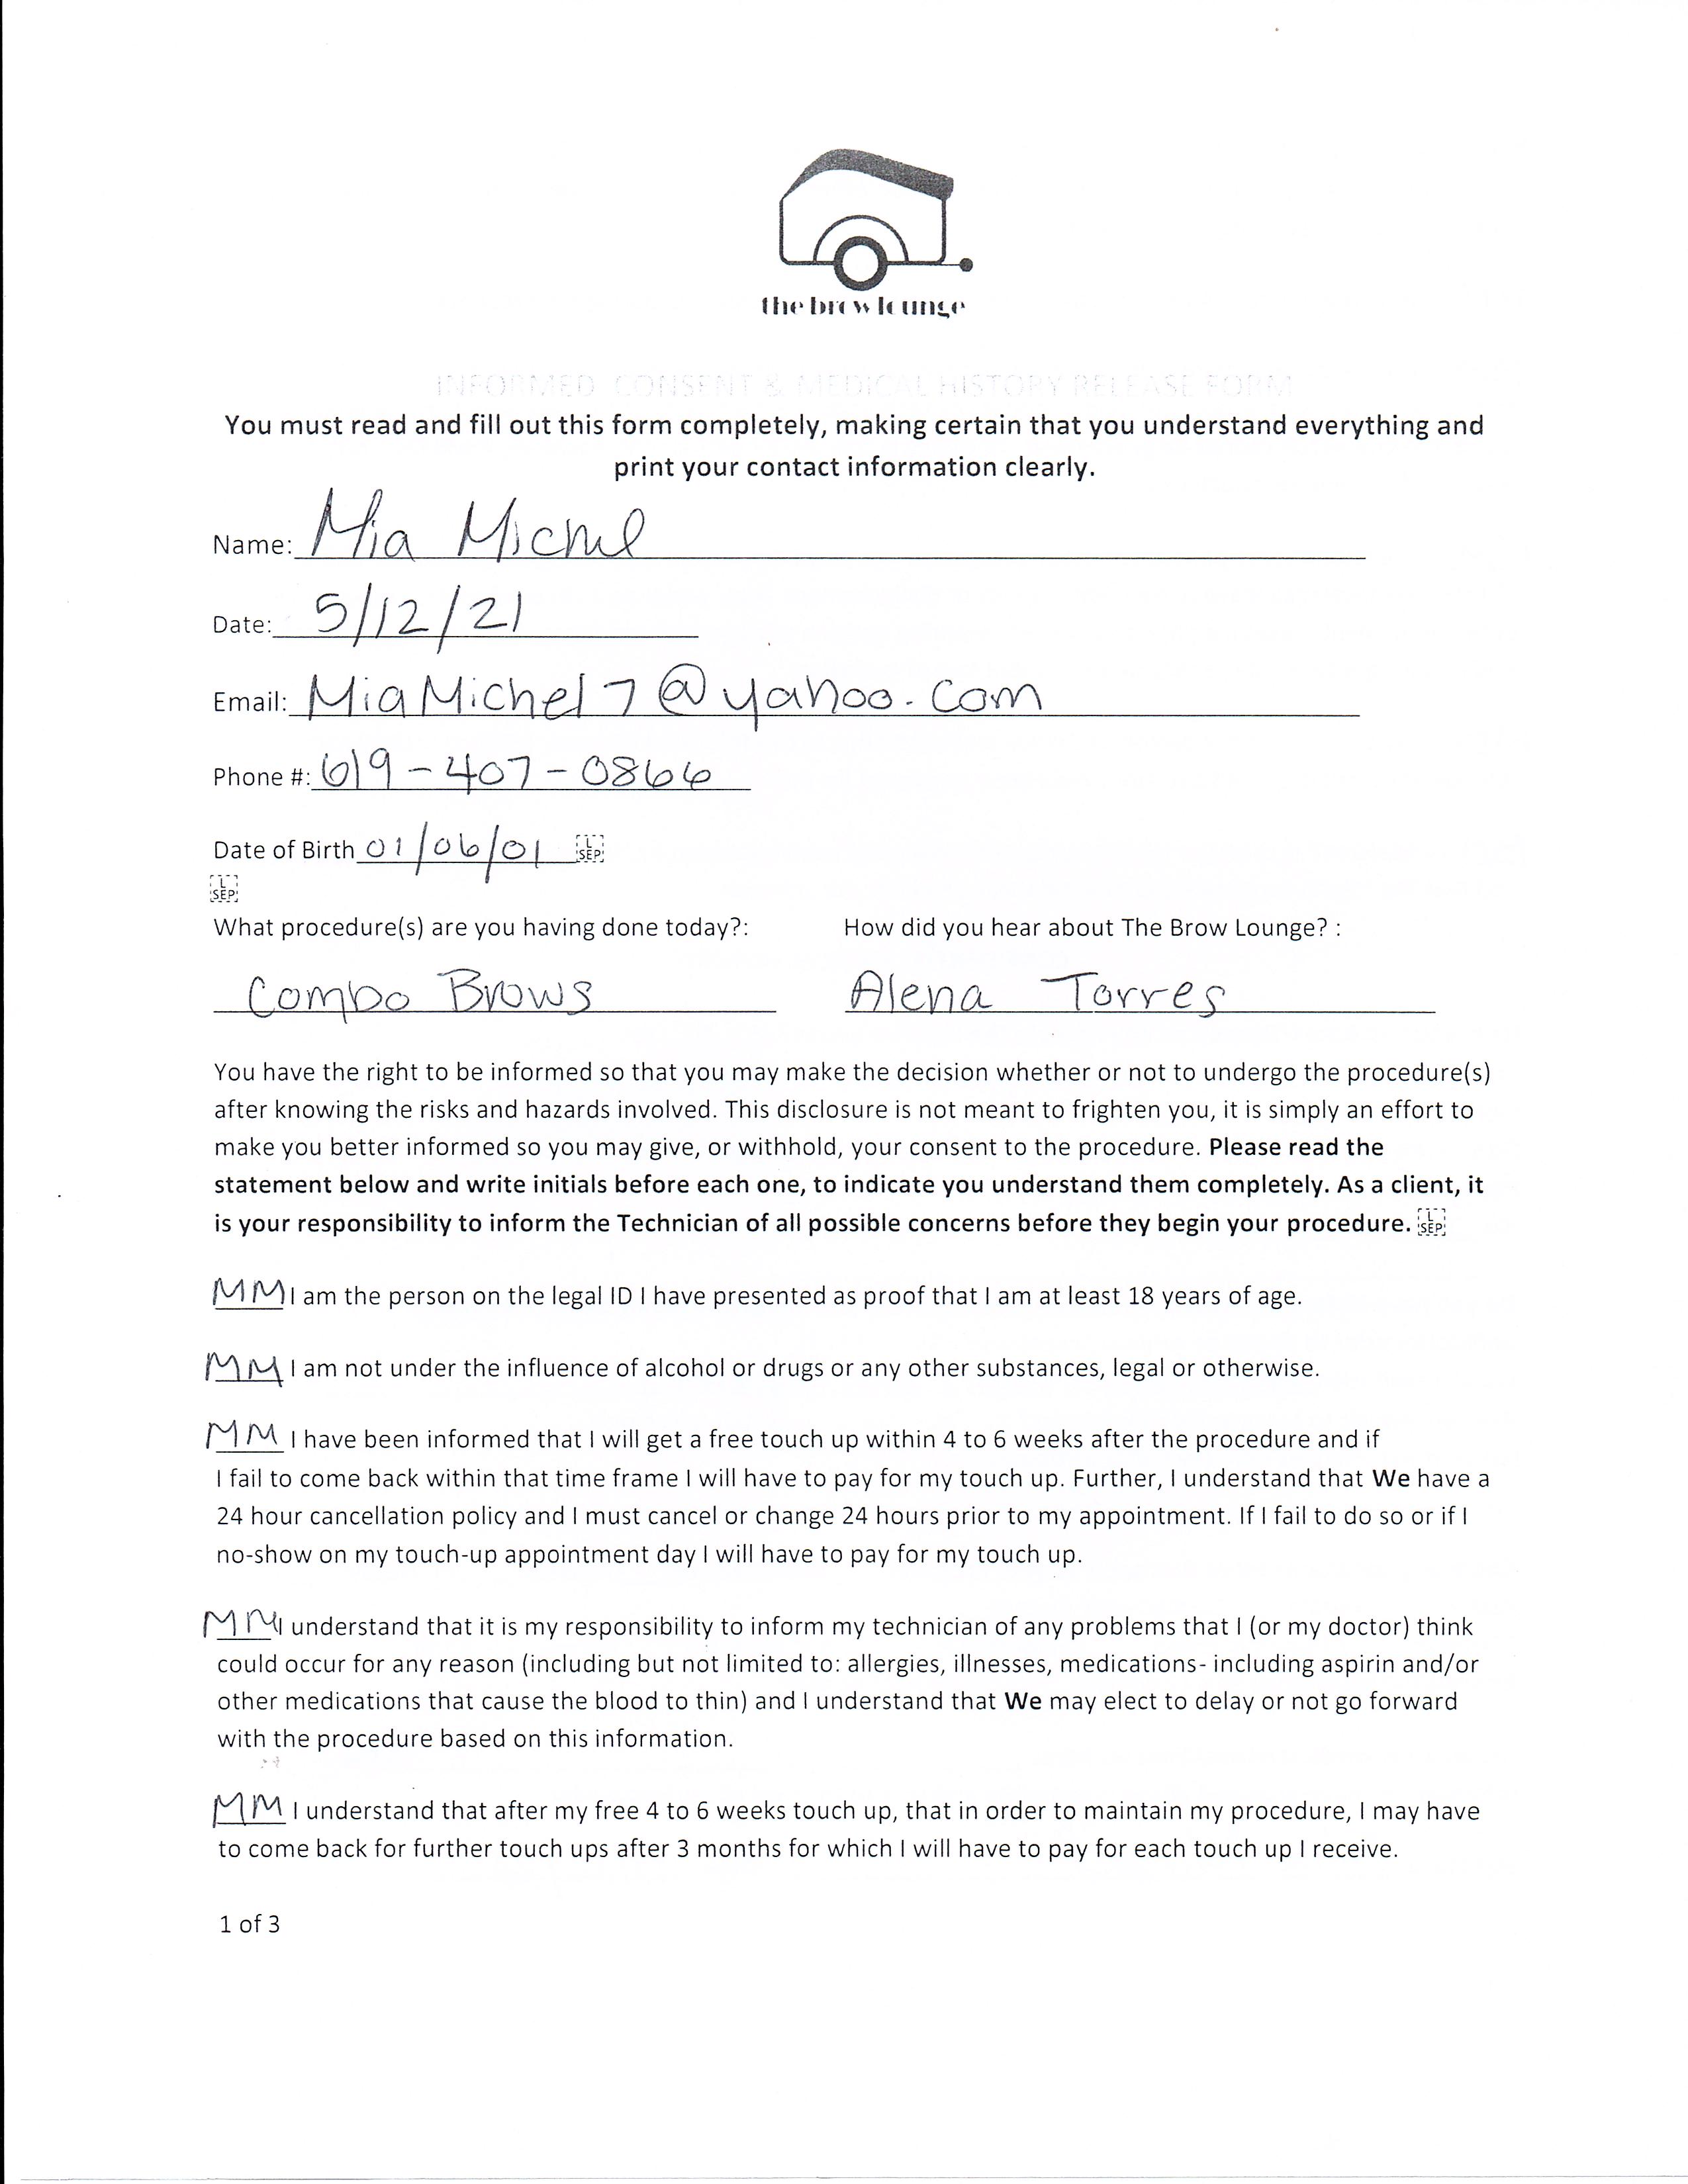 the brow lounge
INFORMED CONSENT & MEDICAL HISTORY RELEASE FORM
You must read and fill out this form completely, making certain that you understand everything and
print your contact information clearly.
Name: Mia Michel
Date: 5/12/21
Email: MiaMichel7@yahoo.com
Phone #: 619-407-0866
Date of Birth 01/06/01 L SEP
L SEP
What procedure(s) are you having done today?: How did you hear about The Brow Lounge? :
Combo Brows Alena Torres
You have the right to be informed so that you may make the decision whether or not to undergo the procedure(s)
after knowing the risks and hazards involved. This disclosure is not meant to frighten you, it is simply an effort to
make you better informed so you may give, or withhold, your consent to the procedure. Please read the
statement below and write initials before each one, to indicate you understand them completely. As a client, it
is your responsibility to inform the Technician of all possible concerns before they begin your procedure. L SEP
MM I am the person on the legal ID I have presented as proof that I am at least 18 years of age.
MM I am not under the influence of alcohol or drugs or any other substances, legal or otherwise.
MM I have been informed that I will get a free touch up within 4 to 6 weeks after the procedure and if
I fail to come back within that time frame I will have to pay for my touch up. Further, I understand that We have a
24 hour cancellation policy and I must cancel or change 24 hours prior to my appointment. If I fail to do so or if I
no-show on my touch-up appointment day I will have to pay for my touch up.
MM I understand that it is my responsibility to inform my technician of any problems that I (or my doctor) think
could occur for any reason (including but not limited to: allergies, illnesses, medications- including aspirin and/or
other medications that cause the blood to thin) and I understand that We may elect to delay or not go forward
with the procedure based on this information.
MM I understand that after my free 4 to 6 weeks touch up, that in order to maintain my procedure, I may have
to come back for further touch ups after 3 months for which I will have to pay for each touch up I receive.
1 of 3